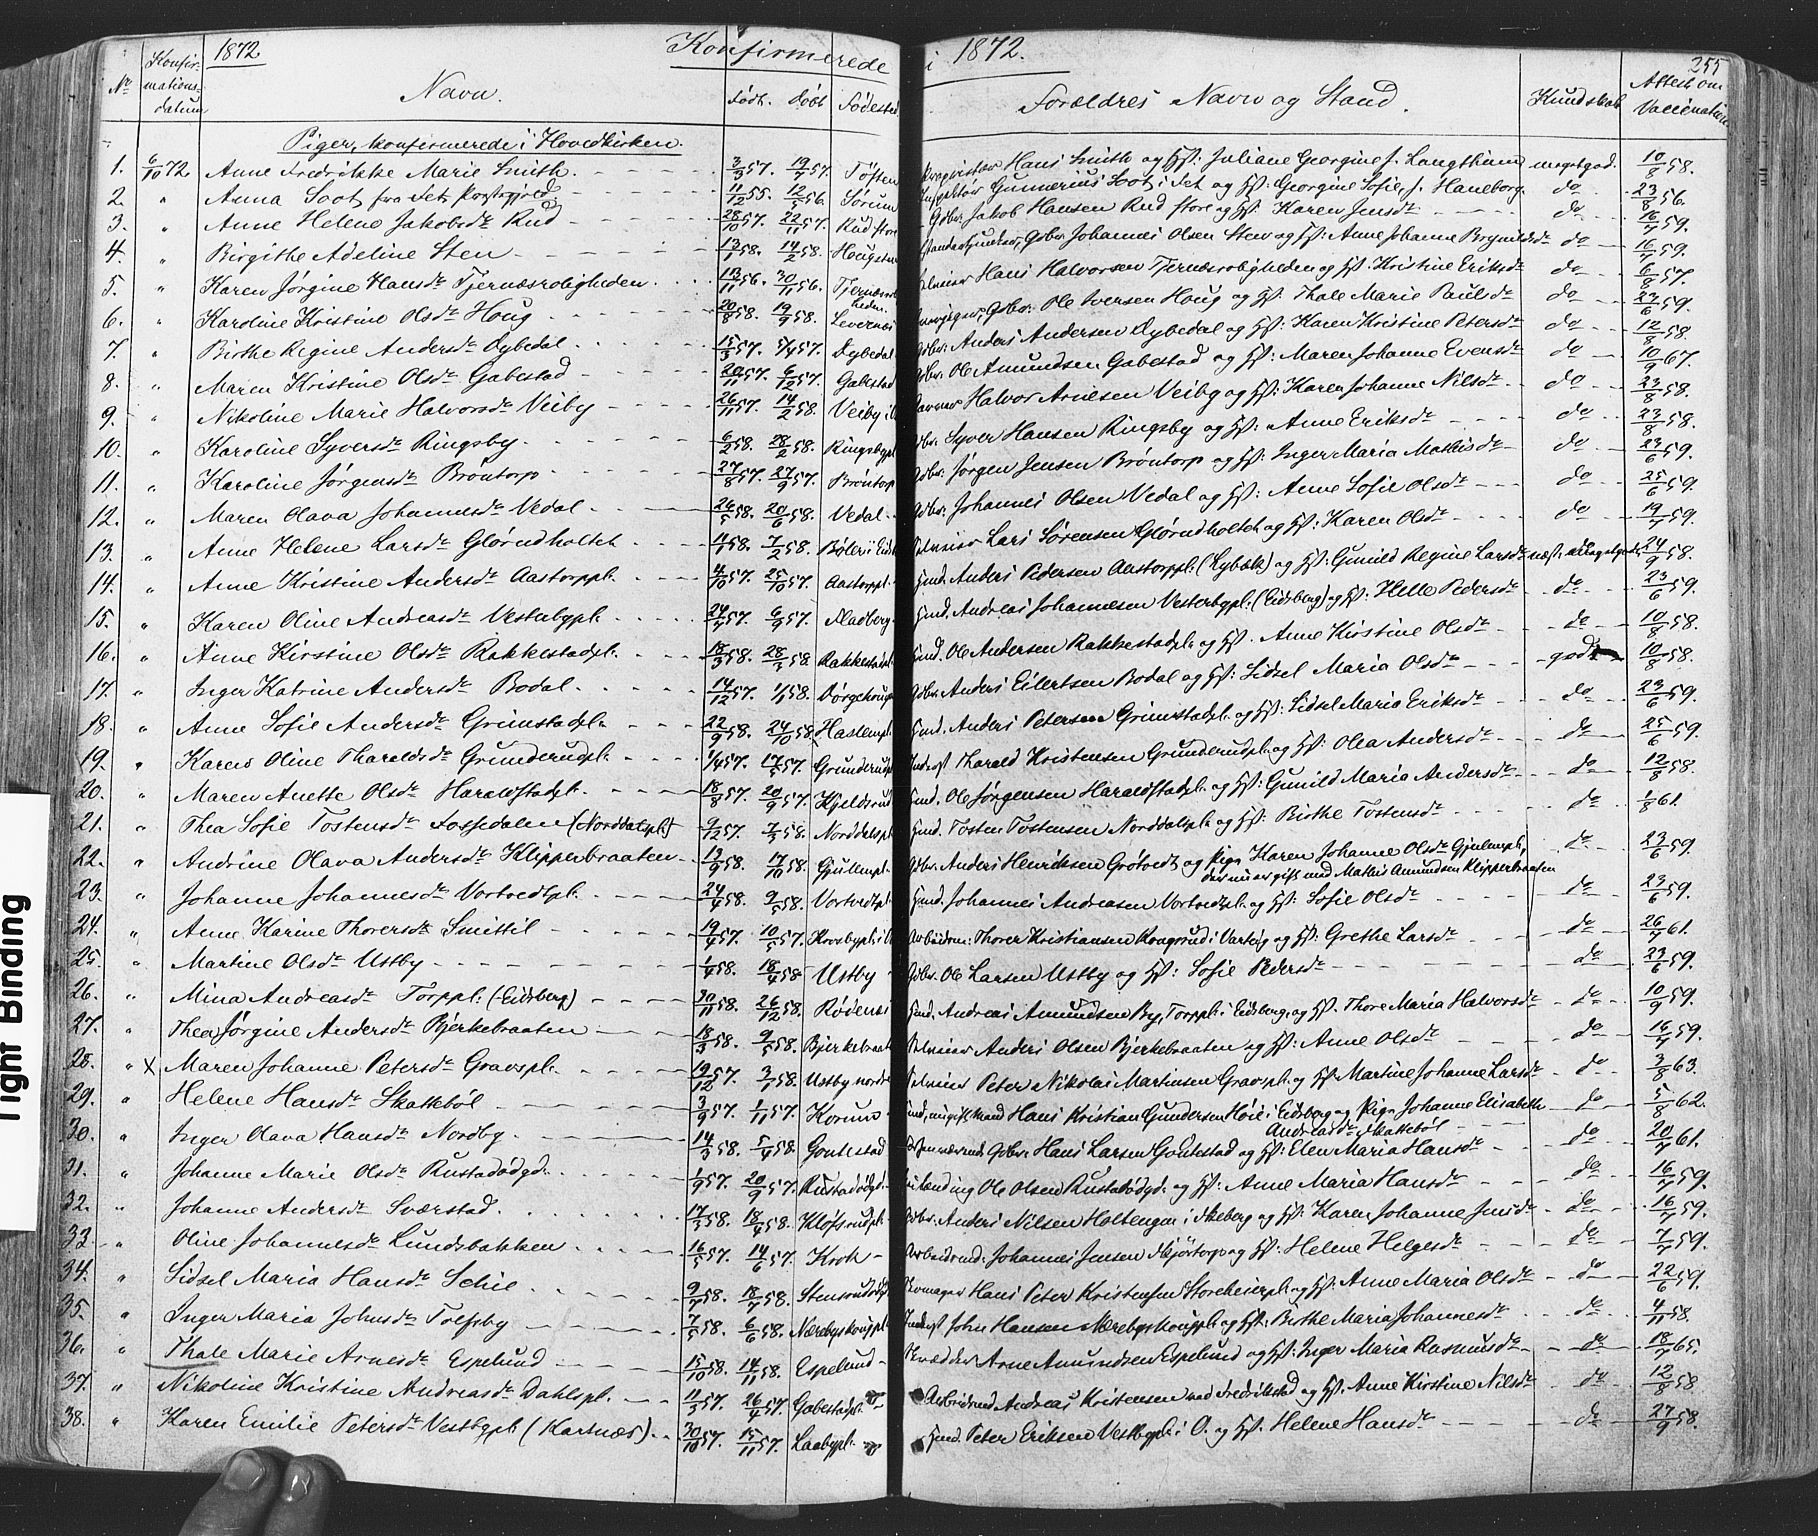 1872 Konfirmerede i 1872. 255
No Konfir-mations-datum Navn. Født. Døbt Fødested Forældres Navn og Stand. Kundskab Attest om Vaccination
Piger, konfirmerede i Hovedkirken.
1. 6/10 72. Anne Fredrikke Marie Smith. 3/3 57. Töften Hans Smith og Hst: Juliane Georgine f. Langthiem megetgod. 10/8 58.
2. " Anna Soot fra Sets Præstegjeld 11/12 55. 12/5 56. Sørum Gunnerius Soot i Set og Hst: Georgine Sofie, f. Haneborg do 23/8 56.
3. " Anne Helene Jakobsdr Rud 28/10 57. 22/11 57. Rud store Gbr. Jakob Hansen Rud store og Hst: Karen Jensdr do 16/7 59.
4. " Birgithe Adeline Sten 13/1 58. 14/2 58. Gbr. Johannes Olsen Sten og Hst: Anne Johanne Brynildsdr do 16/7 59.
5. " Karen Jørgine Hansdr Tjernæsroligheden 13/11 56. 30/11 56. Tjernæsroligheden Hans Halvorsen Tjernæsroligheden og Hst: Kristine Eriksdr do 6/8 57.
6. " Karoline Kristine Olsdr Houg 20/8 58. 19/9 58. Levernæs Gbr: Ole Iversen Houg og Hst: Thale Marie Paulsdr do 27/6 59.
7. " Birthe Regine Andersdr Dybedal 15/3 57. 5/4 57. Dybedal Gbr: Anders Andersen Dybedal og Hst: Karen Kristine Petersdr do 12/8 58.
8. " Maren Kristine Olsdr Gabestad 20/11 57. 6/12 57. Gabestad Gbr. Ole Amundsen Gabestad og Hst: Maren Johanne Evensdr do 10/9 67.
9. " Nikoline Marie Halvorsdr Veiby 26/11 57. 14/2 58. Veiby Halvor Arnesen Veiby og Hst: Karen Johanne Nilsdr do 23/8 58.
10. " Karoline Syversdr Ringsby 6/2 58. 28/2 58. Ringsbypl Gbr. Syver Hansen Ringsby og Hst: Anne Eriksdr do 23/8 58.
11. " Karoline Jørgensdr Brøntorp 27/8 57. 27/9 57. Brøntorp Gbr. Jørgen Jensen Brøntorp og Hst: Inger Maria Mathisdr do 23/6 59.
12. " Maren Olava Johannesdr Vedal 26/5 58. 20/6 58. Vedal Gbr. Johannes Olsen Vedal og Hst: Anne Sofie Olsdr do 25/6 59.
13. " Anne Helene Larsdr Glørudholtet 11/1 58. 7/2 58. Lars Sørensen Glørudholtet og Hst: Karen Olsdr do 19/7 59.
14. " Anne Kristine Andersdr Aastorppl. 4/10 57. 25/10 57. Aastorppl. Hmd. Anders Pedersen Aastorppl. og Hst: Gunild Regine Larsdr næst. megetgod 24/9 58.
15. " Karen Oline Andreasdr Vestubypl. 24/7 57. 6/9 57. Hmd. Andreas Johannesen Vesterbypl. (Eidsberg) og Hst: Helle Pedersdr do 23/6 59.
16. " Anne Kirstine Olsdr Rakkestadpl. 18/3 58. 28/3 58. Rakkestadpl Hmd. Ole Andersen Rakkestadpl. og Hst. Anne Kirstine Olsdr do 10/8 58.
17. " Inger Katrine Andersdr Bodal 14/12 57. 1/1 58. Gbr. Anders Eilertsen Bodal og Hst: Sidsel Maria Olsdr god 10/8 58.
18. " Anne Sofie Andersdr Grimstadpl. 22/9 58. 24/10 58. Haslempl. Hmd. Anders Petersen Grimstadpl. og Hst: Sidsel Maria Eriksdr do 23/6 59.
19. " Karen Oline Tharaldsdr Grunderudpl. 1/4 57. 17/5 57. Grunderudpl Inderst Tharald Kristensen Grunderudpl. og Hst: Olea Andersdr do 25/6 59.
20. " Maren Anette Olsdr Haraldstadpl. 18/8 57. 20/9 57. Kjeldsrud Hmd. Ole Jørgensen Haraldstadpl. og Hst: Gunild Maria Andersdr do 12/8 58.
21. " Thea Sofie Tostensdr Fossedalen (Norddalspl) 9/12 57. 7/3 58. Norddalspl. Hmd. Tosten Tostensen Norddalspl. og Hst: Birthe Tostensdr do 1/8 61.
22. " Andrine Olava Andersdr Klipperbraaten 13/9 58. 17/10 58. Gjulempl. Gbr. Anders Henriksen Grötvedt, og Pige Karen Johanne Olsdr Gjulempl., der nu er gift med Mathis Amundsen Klipperbraaten do 23/6 59.
23. " Johanne Johannesdr Vortvedtpl. 24/4 58. 9/5 58. Vortvedtpl. Hmd. Johannes Andreasen Vortvedtpl. og Hst: Sofie Olsdr do 23/6 59.
24. " Anne Karine Thorersdr Smittil 19/4 57. 10/5 57. Arbeidsm: Thorer Kristiansen Kongsrud i Varteig og Hst: Grethe Larsdr do 26/7 61.
25. " Martine Olsdr Ustby 1/4 58. 18/4 58. Ustby Gbr. Ole Larsen Ustby og Hst: Sofie Pedersdr do 23/6 59.
26. " Mina Andreasdr Torppl. (Eidsberg) 30/11 58. 26/12 58. Rødenæs Hmd. Andreas Amundsen By, Torppl. i Eidsberg, og Hst. Thore Maria Halvorsdr do 10/9 59.
27. " Thea Jørgine Andersdr Bjerkebraaten 13/3 58. 9/5 58. Bjerkebraaten Selveier Anders Olsen Bjerkebraaten og Hst: Anne Olsdr do 16/7 59.
28. " X Maren Johanne Petersdr Gravspl. 19/12 57. 3/1 58. Ustby nordre Selveier Peter Nikolai Martinsen Gravspl. og Hst: Martine Johanne Larsdr do 3/8 63.
29. " Helene Hansdr Skattebøl 3/9 57. 1/11 57. Korum ugift Hans Kristian Gundersen Höie i Eidsberg og Pige Johanne Elisabeth Andreasdr Skattebøl do 5/8 62.
30. " Inger Olava Hansdr Nordby 14/3 58. 5/4 58. Gontestad Gbr. Hans Larsen Gontestad og Hst: Elen Maria Hansdr do 20/7 61.
31. " Johanne Marie Olsdr Rustadødgd. 1/9 57. 20/9 57. Rustadødgd. Ole Olsen Rustadødgd. og Hst: Anne Maria Hansdr do 16/7 59.
32. " Johanne Andersdr Sværstad. 17/3 58. 18/4 58. Kløfsrudpl. Gbr. Anders Nilsen Holtengen i Skeberg og Hst: Karen Johanne Jensdr do 16/7 59.
33 " Oline Johannesdr Lundsbakken 16/5 57. 14/6 57. Krok Arbeidsmd: Johannes Jensen Skjørtorp og Hst: Helene Helgesdr do 7/7 59.
34. " Sidsel Maria Hansdr Schie 9/7 58. 18/7 58. Skomager Hans Peter Kristensen Storeheierpl. og Hst: Anne Maria Olsdr do 22/6 59.
35. " Inger Maria Johnsdr Tolfsby 7/5 58. 6/6 58. Nærebyskouppl. Inderst John Hansen Nærebyskouppl. og Hst: Birthe Maria Johannesdr do 4/11 58.
36. " Thale Marie Arnesdr Espelund 15/10 58. 14/11 58. Espelund Skrædder Arne Amundsen Espelund og Hst: Inger Maria Rasmusdr do 18/7 65.
37. " Nikoline Kristine Andreasdr Dahlspl. 11/3 57. 26/4 57. Gabestadpl. Arbeidsmd Andreas Kristensen ved Fredrikstad og Hst: Anne Kirstine Nilsdr do 12/8 58
38. " Karen Emilie Petersdr Vestbypl. (Kartnæs) 30/10 57. 15/11 57. Laabypl. Hmd. Peter Eriksen Vestbypl. i O. og Hst. Helene Hansdr do 27/9 58.
Tight Binding